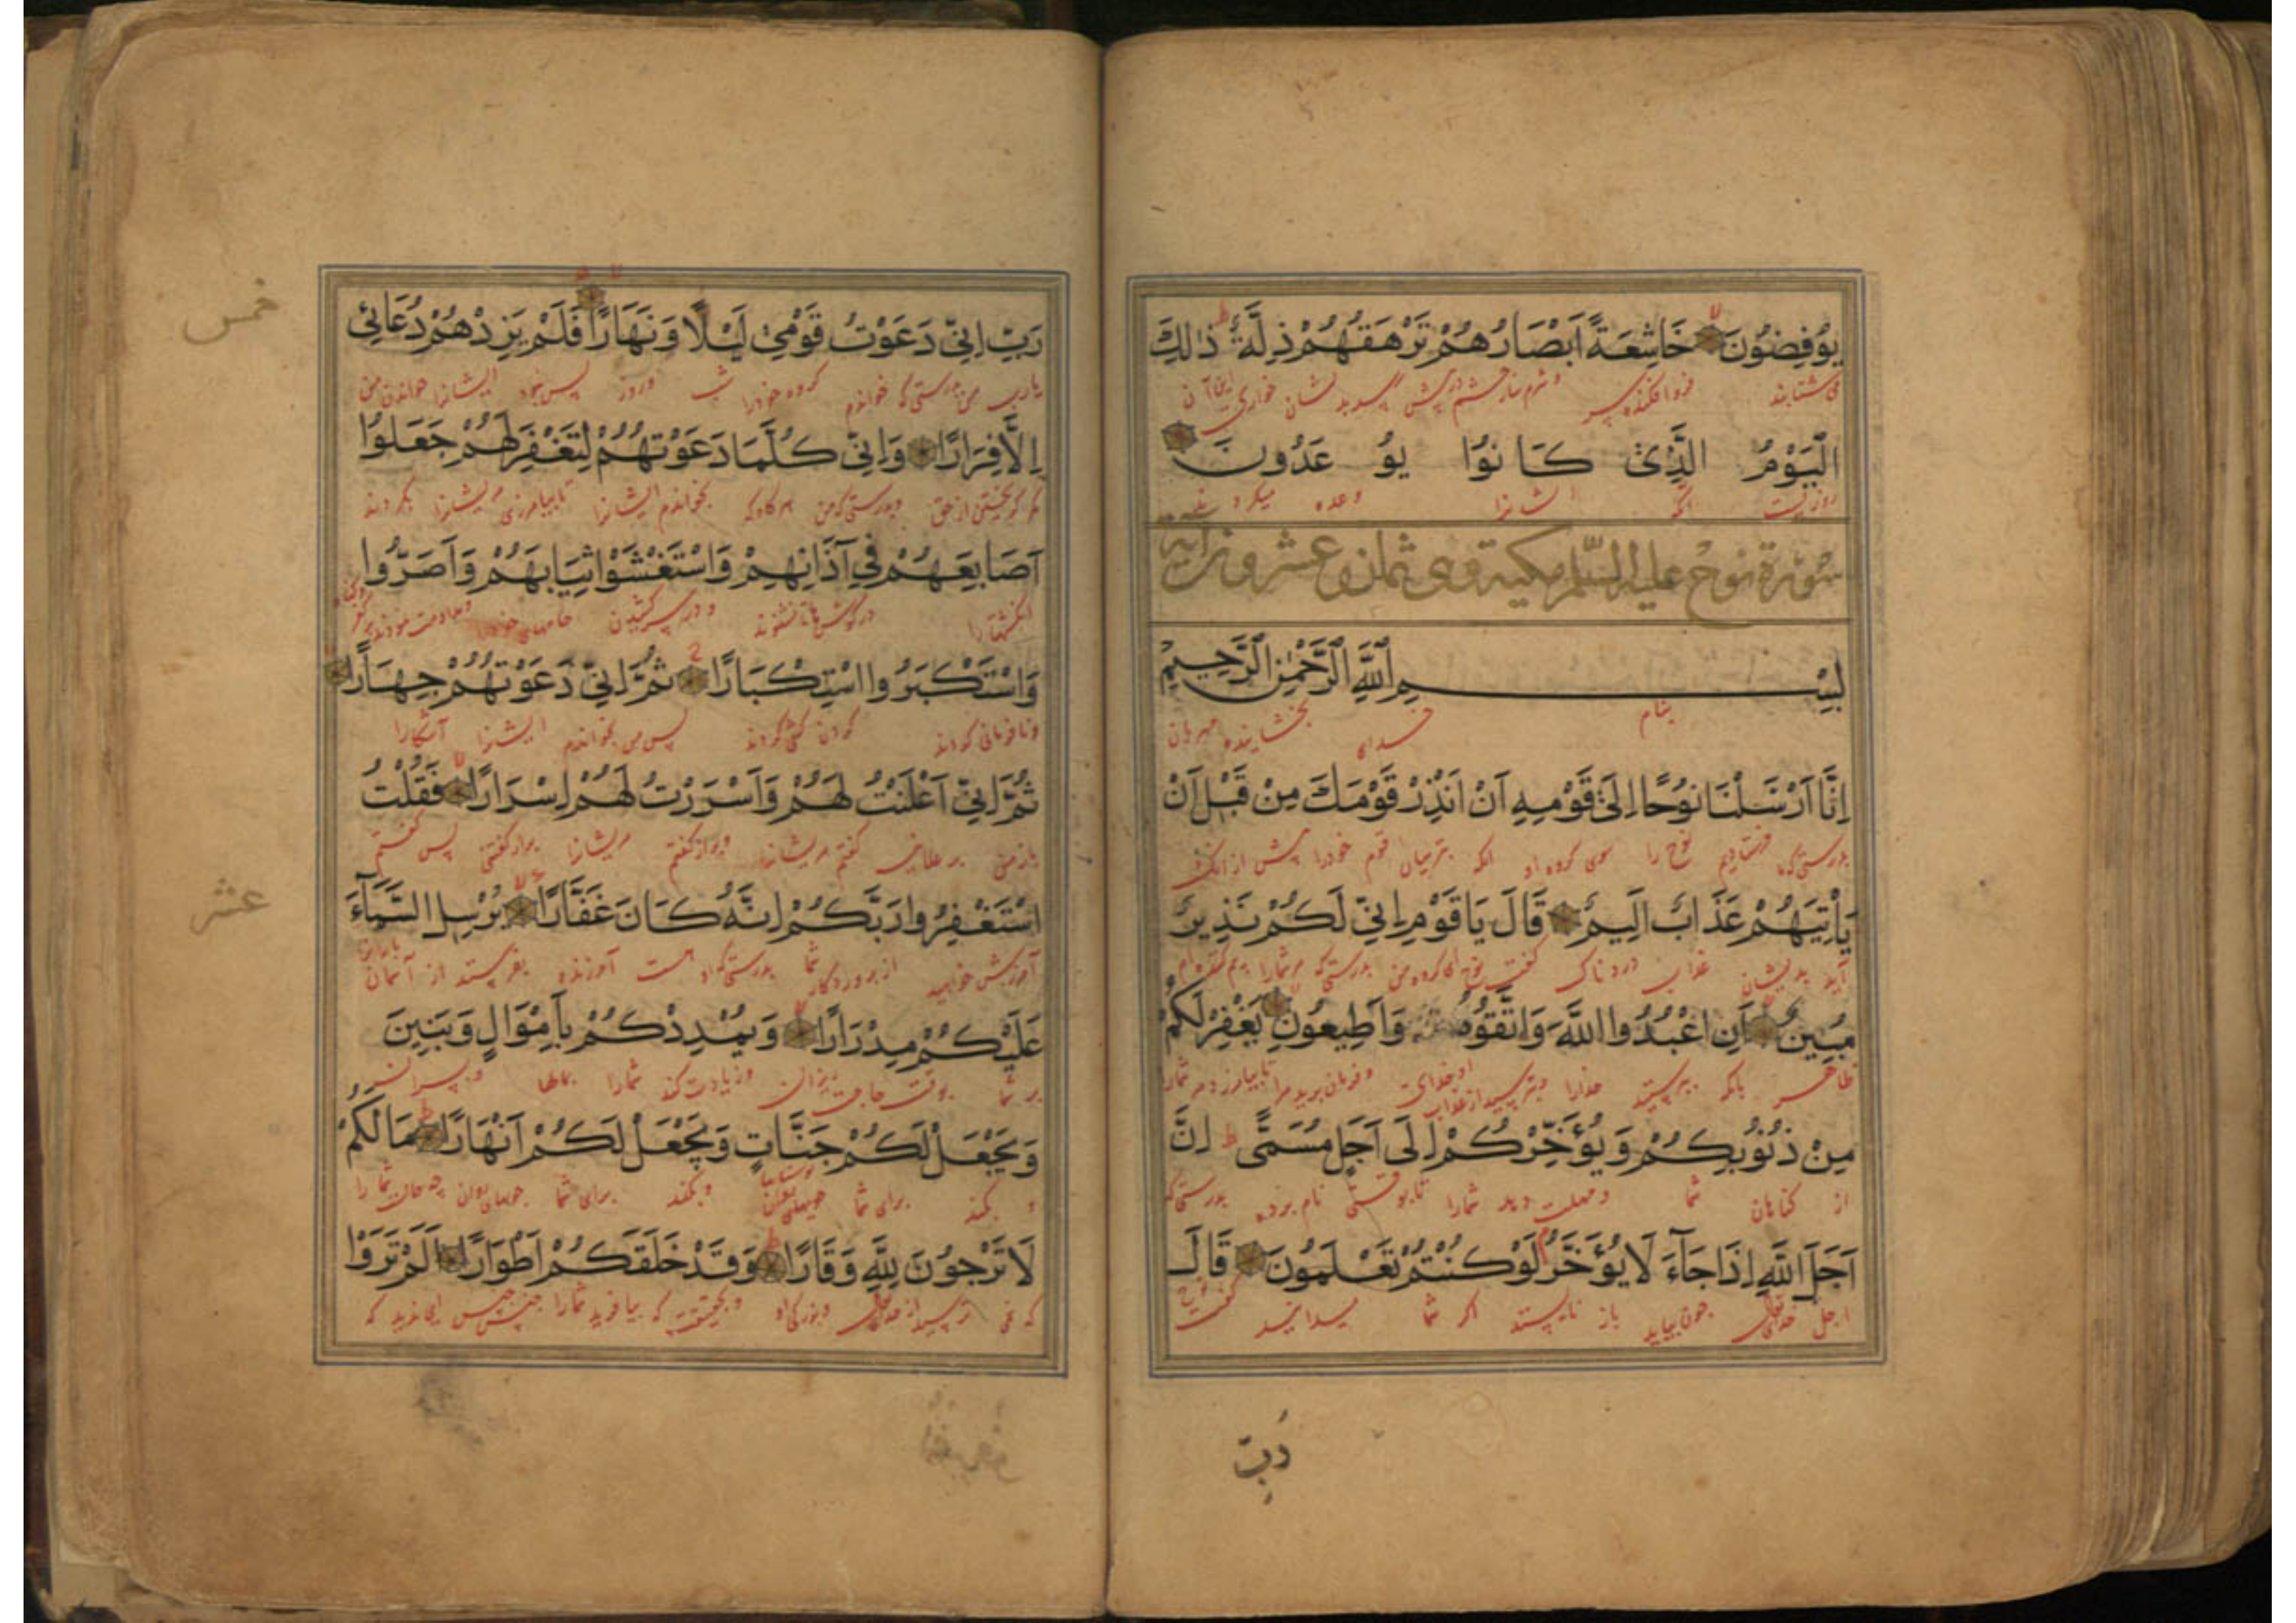 يُوفِضُونَ خَاشِعَةً اَبْصَارُهُمْ تَرْهَقُهُمْ ذِلَّةٌ ذٰلِكَ
می شتابند فرو افکنده
الْيَوْمُ الَّذِى كَانُوا يُوعَدُونَ
روزیست انکه ایشانرا وعده میکردند
سورة نوح عليه السلم مكية وهى ثمان وعشرون اية
بِسْمِ اللَّهِ الرَّحْمٰنِ الرَّحِيمِ
بنام خدای بخشاینده مهربان
اِنَّا اَرْسَلْنَا نُوحًا اِلَىٰ قَوْمِهِ اَنْ اَنْذِرْ قَوْمَكَ مِنْ قَبْلِ اَنْ
بدرستی که ما فرستادیم نوح را سوی کروه او انکه بترسان قوم خودرا پیش از انک
يَأْتِيَهُمْ عَذَابٌ اَلِيمٌ قَالَ يَا قَوْمِ اِنِّى لَكُمْ نَذِيرٌ
آید بدیشان عذاب دردناک کفت نوح ای کروه من بدرستی که مرشمارا
مُبِينٌ اَنِ اعْبُدُوا اللَّهَ وَاتَّقُوهُ وَاَطِيعُونِ يَغْفِرْ لَكُمْ
ظاهر بانکه بپرستید خدارا وبترسید از عذاب او خدای وفرمان برید مرا تا بیامرزد مر شمارا
مِنْ ذُنُوبِكُمْ وَيُؤَخِّرْكُمْ اِلَى اَجَلٍ مُسَمًّى اِنَّ
از کناهان شما ومهلت دهد شمارا تا بوقتی نام برده بدرستی که
اَجَلَ اللَّهِ اِذَا جَآءَ لَا يُؤَخَّرُ لَوْ كُنْتُمْ تَعْلَمُونَ قَالَ
اجل خدای تعالی چون بیاید باز نایستد اکر شما میدانید کفت نوح
رَبِّ
رَبِّ اِنِّى دَعَوْتُ قَوْمِى لَيْلًا وَنَهَارًا فَلَمْ يَزِدْهُمْ دُعَائِى
یارب من بدرستی که خواندم کروه خودرا شب وروز پس نیفزود ایشانرا خواندن من
اِلَّا فِرَارًا وَاِنِّى كُلَّمَا دَعَوْتُهُمْ لِتَغْفِرَ لَهُمْ جَعَلُوا
مکر کریختن از حق وبدرستی که من هرکاه که بخواندم ایشانرا تا بیامرزی مر ایشانرا بکردند
اَصَابِعَهُمْ فِى آذَانِهِمْ وَاسْتَغْشَوْا ثِيَابَهُمْ وَاَصَرُّوا
انکشتهارا در کوشها تا نشنوند ودر سر کشیدن جامهای خودرا
وَاسْتَكْبَرُوا اسْتِكْبَارًا ثُمَّ اِنِّى دَعَوْتُهُمْ جِهَارًا
ونافرمانی کردند کردن کشی کردند پس من بخواندم ایشانرا آشکارا
ثُمَّ اِنِّى اَعْلَنْتُ لَهُمْ وَاَسْرَرْتُ لَهُمْ اِسْرَارًا فَقُلْتُ
باز من بر علانیه کفتم مر ایشانرا وبراز کفتم مر ایشانرا براز کفتنی پس کفتم
اسْتَغْفِرُوا رَبَّكُمْ اِنَّهُ كَانَ غَفَّارًا يُرْسِلِ السَّمَآءَ
آمرزش خواهید از پروردکار شما بدرستی که او هست آمرزنده بفرستد از آسمان بارانرا
عَلَيْكُمْ مِدْرَارًا وَيُمْدِدْكُمْ بِاَمْوَالٍ وَبَنِينَ
بر شما بوقت حاجت ریزان وزیادت کند شمارا بمالها وپسران
وَيَجْعَلْ لَكُمْ جَنَّاتٍ وَيَجْعَلْ لَكُمْ اَنْهَارًا مَا لَكُمْ
وبکند برای شما بوستانها وبکند برای شما جویهای روان چه حالست شمارا
لَا تَرْجُونَ لِلَّهِ وَقَارًا وَقَدْ خَلَقَكُمْ اَطْوَارًا اَلَمْ تَرَوْا
که نمی ترسید از خدای وبزرکی او وبحقیقت که بیافرید شمارا
خمس
عشر